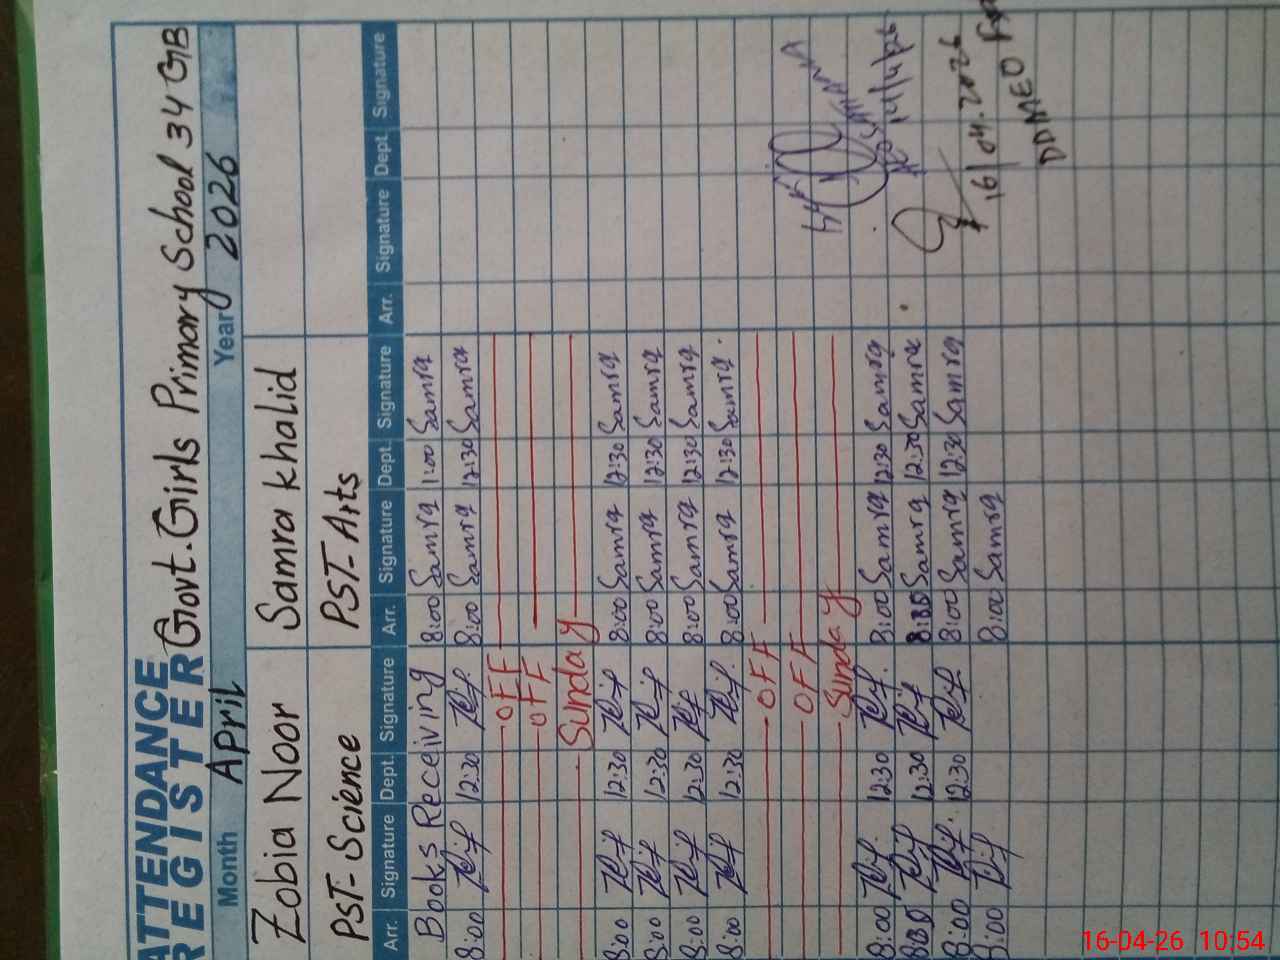 ATTENDANCE
REGISTER Govt. Girls Primary School 34 GB
Month April Year 2026
Zobia Noor Samra Khalid
PST-Science PST-Arts
Arr. Signature Dept. Signature Arr. Signature Dept. Signature Arr. Signature Dept. Signature
Books Receiving 8:00 Samra 1:00 Samra
8:00 12:30 8:00 Samra 12:30 Samra
OFF
OFF
Sunday
8:00 12:30 8:00 Samra 12:30 Samra
8:00 12:30 8:00 Samra 12:30 Samra
8:00 12:30 8:00 Samra 12:30 Samra
8:00 12:30 8:00 Samra 12:30 Samra
OFF
OFF
Sunday
8:00 12:30 8:00 Samra 12:30 Samra
12:30 Samra 12:30 Samra
8:00 12:30 8:00 Samra 12:30 Samra
8:00 8:00 Samra
14/4/26
16/04.2026
16-04-26 10:54